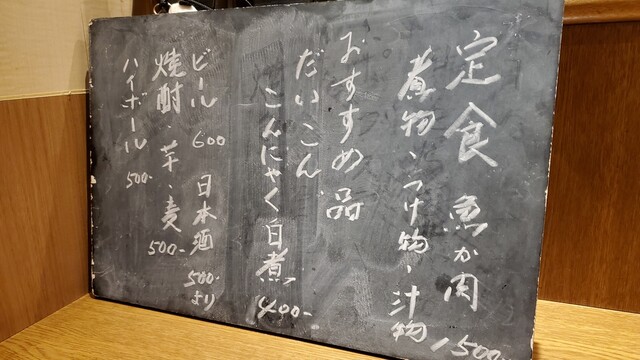 定食 魚か肉
煮物、つけ物、汁物 1500
おすすめ品
だいこん
こんにゃく白煮 400-
ビール 600 日本酒 500より
焼酎・芋、麦 500-
ハイボール 500-